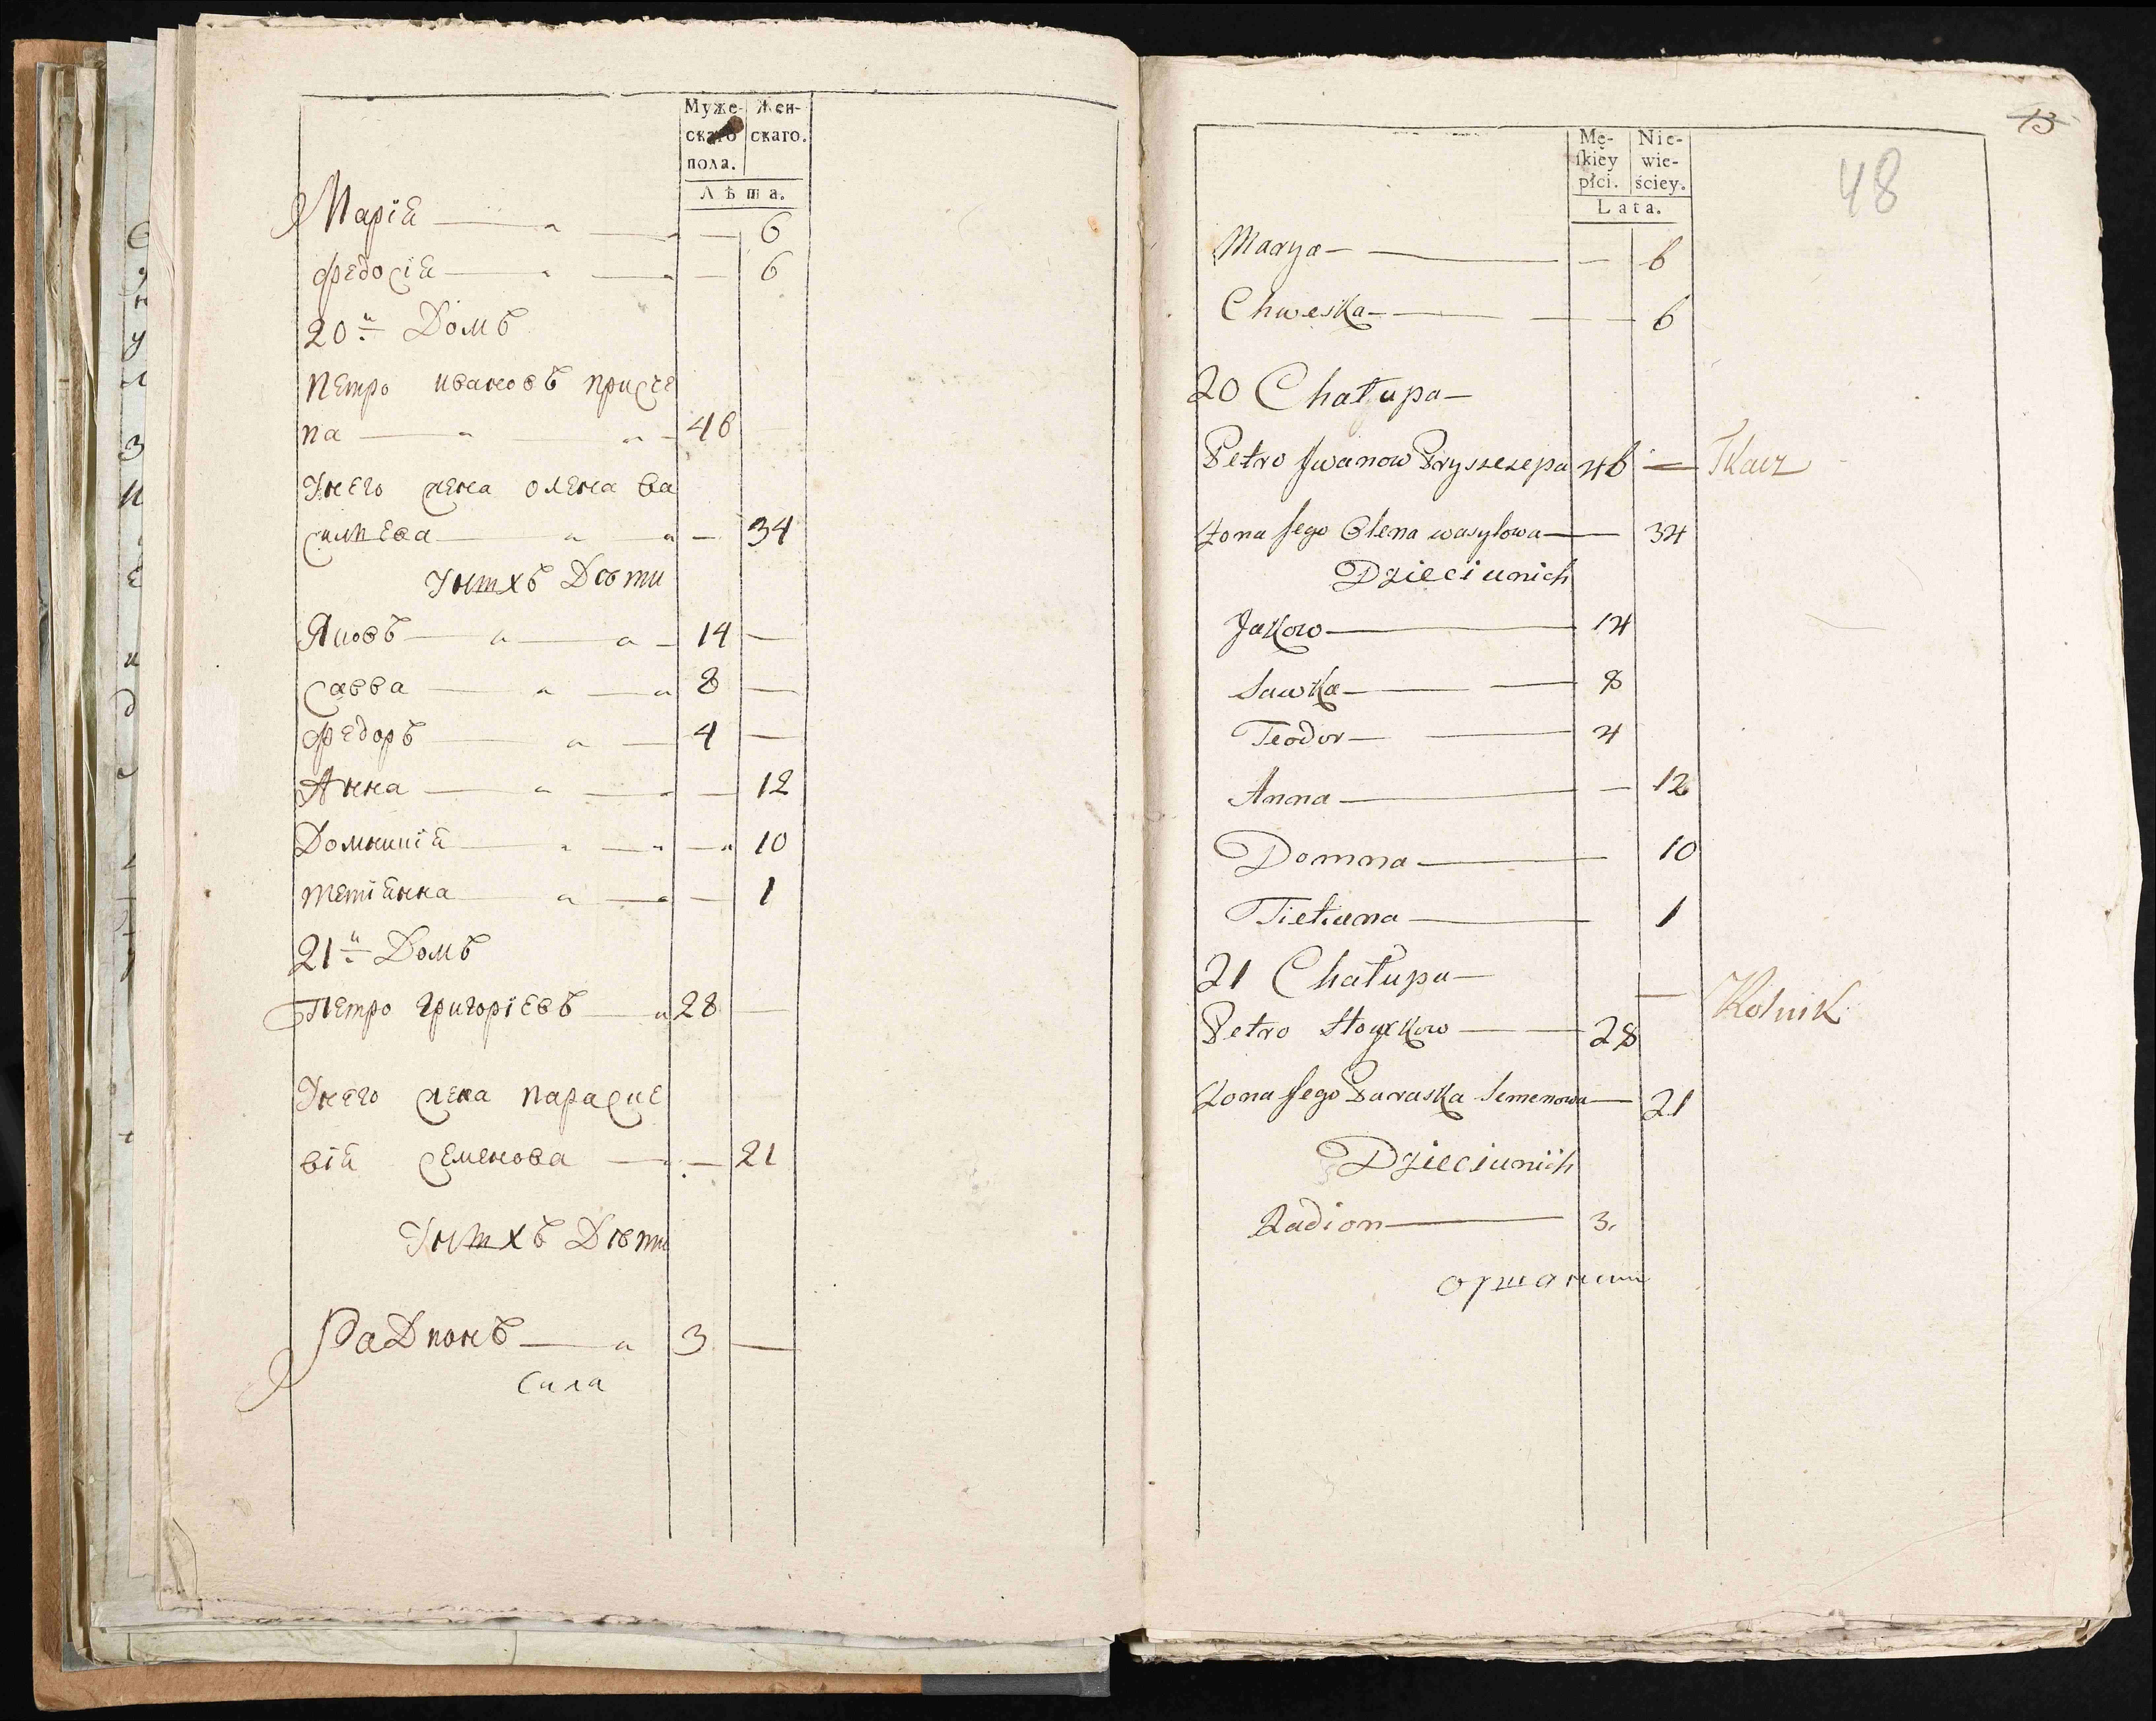 Муже-
скаго
пола.
Жен-
скаго.
Лѣта.
Марія — — — 6
Федосія — — — 6
20й Домъ
Петро Ивановъ Присче
па — — 46 —
Унего жена Олена Ва
силпева — — 34
Унихъ Дѣти
Яковъ — — 14 —
Савва — — 8 —
Федоръ — — 4 —
Анна — — — 12
Домникія — — — 10
Тетіянна — — — 1
21й Домъ
Петро Григоріевъ — 28 —
Унего жена Параске
вія Семенова — — 21
Унихъ Дѣти
Радионъ — 3 —
Сила
13
48
Mę-
ſkiey
płci.
Nie-
wie-
ściey.
Lata.
Marya — — — 6
Chweska — — — 6
20 Chałupa —
Petro Jwanow Pryszczepa 46 — Tkacz
Żona Jego Olena wasylowa — 34
Dzieci unich
Jakow — 14
Sawka — — 8
Teodor — — 4
Anna — — 12
Domna — 10
Tietiana — 1
21 Chałupa —
Petro — — 28 — Rolnik
Żona Jego Paraska Semenowa — 21
Dzieci unich
Radion — 3.